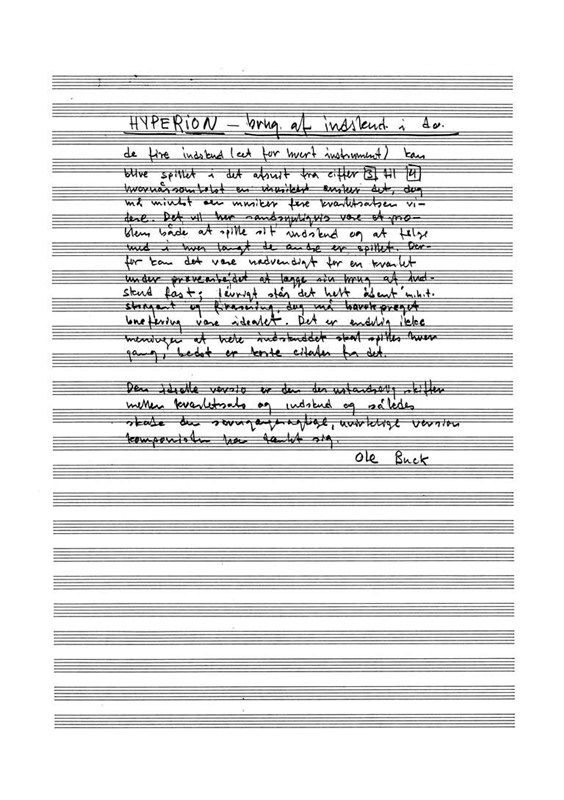 HYPERION – brug af indskud i do.
de fire indskud (eet for hvert instrument) kan
blive spillet i det afsnit fra ciffer 3 til 4
hvornårsomhelst en musiker ønsker det, dog
må mindst en musiker føre kvartetsatsen vi-
dere. Det vil her sandsynligvis være et pro-
blem både at spille sit indskud og at følge
med i hvor langt de andre er spillet. Der-
for kan det være nødvendigt for en kvartet
under prøvearbejdet at lægge sin brug af ind-
skud fast; iøvrigt står det helt åbent m.h.t.
strøgart og frasering dog må barokpræget
bueføring være idealet. Det er endelig ikke
meningen at hele indskuddet skal spilles hver
gang, bedst er korte citater fra det.
Den ideelle version er den der ustandselig skifter
mellem kvartetsats og indskud og således
skabe den søvngængeragtige, uvirkelige version
komponisten har tænkt sig.
Ole Buck